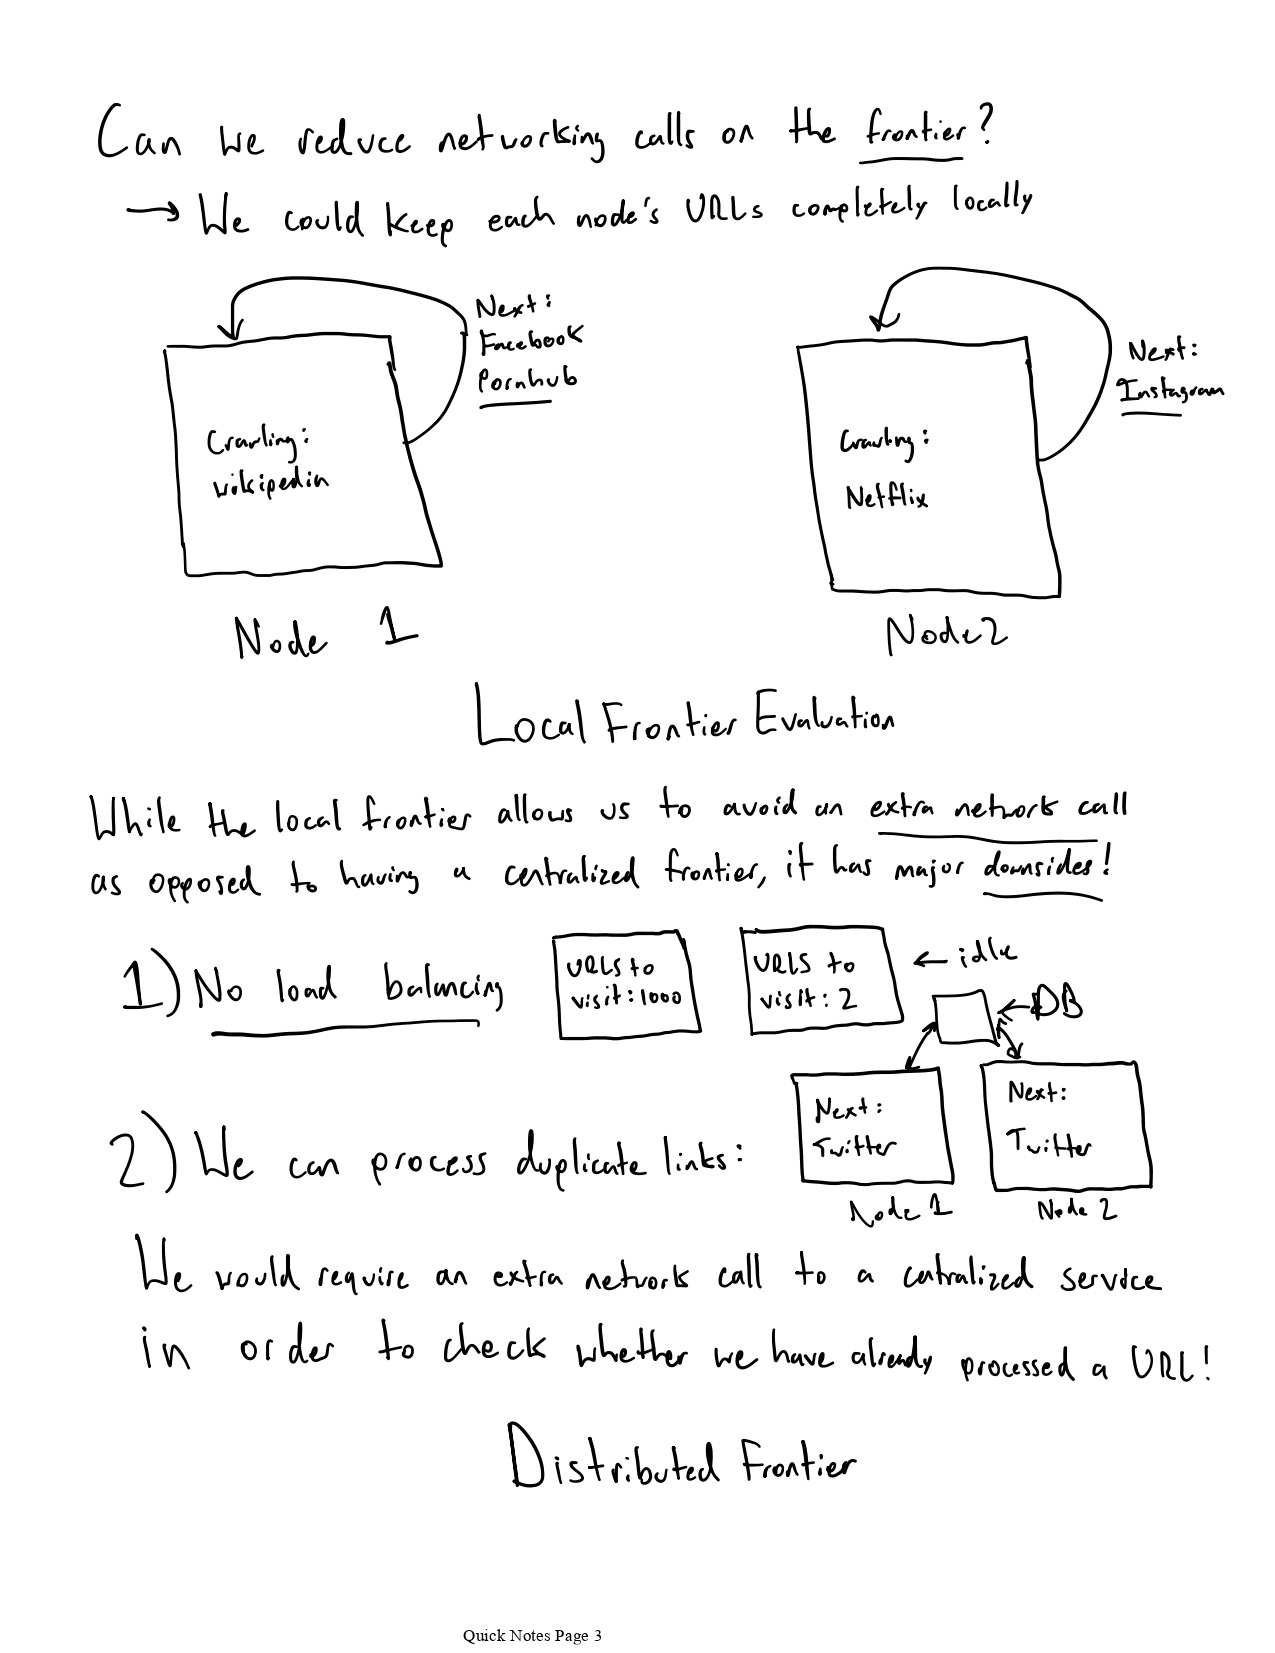 Can we reduce networking calls on the frontier?
→ We could keep each node's URLs completely locally
Next:
Facebook
Pornhub
Crawling:
wikipedia
Node 1
Next:
Instagram
Crawling:
Netflix
Node 2
Local Frontier Evaluation
While the local frontier allows us to avoid an extra network call
as opposed to having a centralized frontier, it has major downsides!
1) No load balancing
URLs to
visit: 1000
URLS to
visit: 2
← idle
← DB
2) We can process duplicate links:
Next:
Twitter
Node 1
Next:
Twitter
Node 2
We would require an extra network call to a centralized service
in order to check whether we have already processed a URL!
Distributed Frontier
Quick Notes Page 3